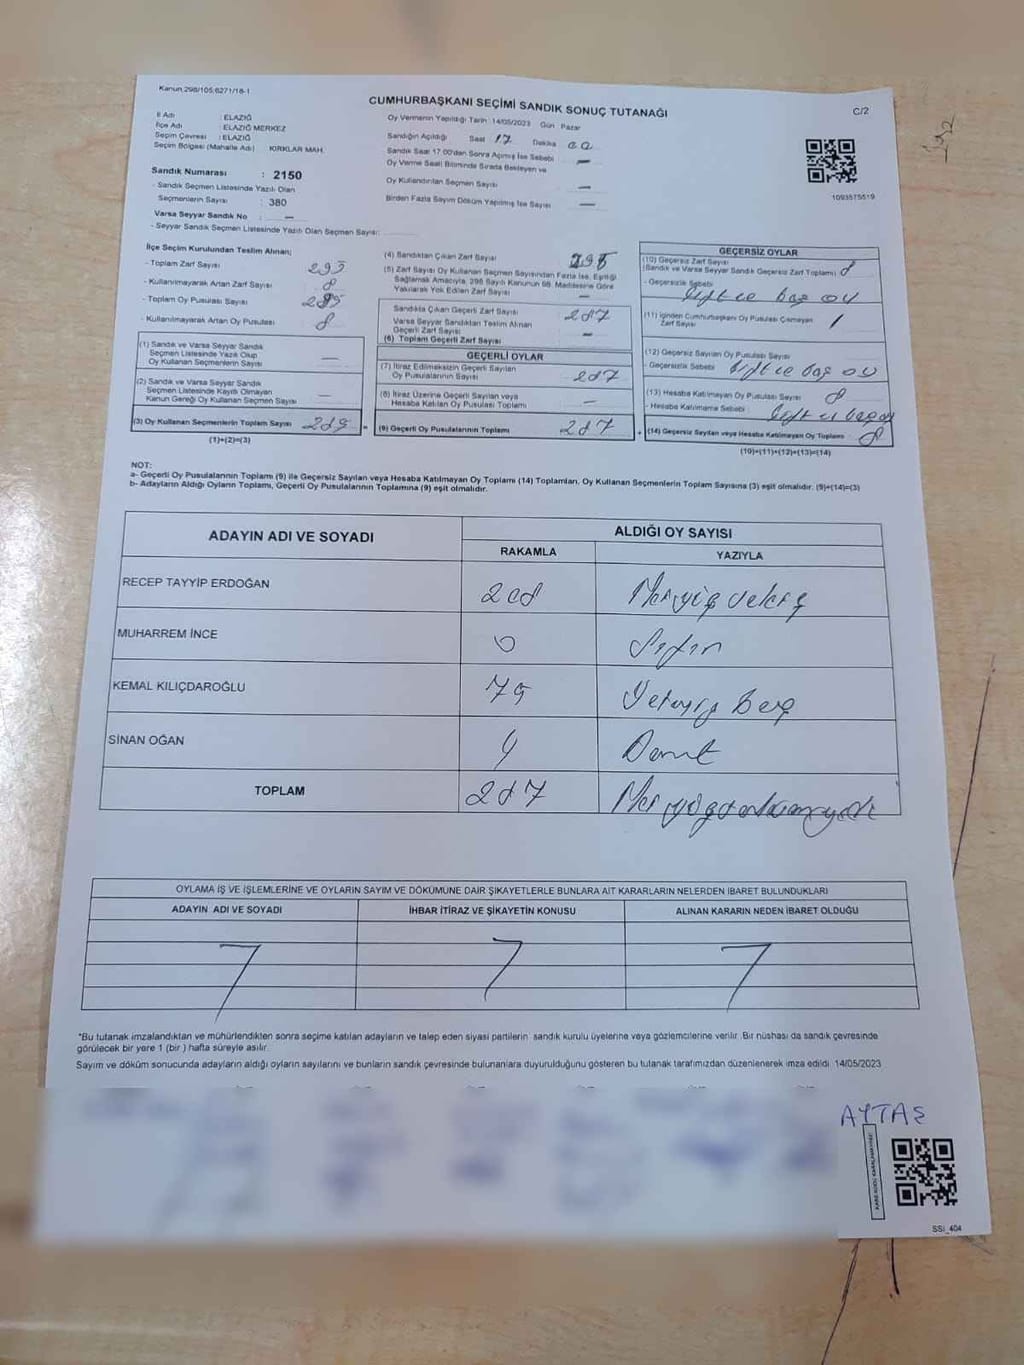 Kanun 298/105,6271/18-1
CUMHURBAŞKANI SEÇİMİ SANDIK SONUÇ TUTANAĞI
C/2
İl Adı : ELAZIĞ
İlçe Adı : ELAZIĞ MERKEZ
Seçim Çevresi : ELAZIĞ
Seçim Bölgesi (Mahalle Adı) KIRKLAR MAH.
Sandık Numarası : 2150
- Sandık Seçmen Listesinde Yazılı Olan
Seçmenlerin Sayısı : 380
Varsa Seyyar Sandık No : —
- Seyyar Sandık Seçmen Listesinde Yazılı Olan Seçmen Sayısı:
Oy Vermenin Yapıldığı Tarih : 14/05/2023 Gün Pazar
Sandığın Açıldığı Saat 17 Dakika 00
Sandık Saat 17.00'dan Sonra Açılmış İse Sebebi —
Oy Verme Saati Bitiminde Sırada Bekleyen ve
Oy Kullandırılan Seçmen Sayısı —
Birden Fazla Sayım Döküm Yapılmış İse Sayısı —
1093575519
İlçe Seçim Kurulundan Teslim Alınan;
- Toplam Zarf Sayısı
- Kullanılmayarak Artan Zarf Sayısı
- Toplam Oy Pusulası Sayısı
- Kullanılmayarak Artan Oy Pusulası
(1) Sandık ve Varsa Seyyar Sandık
Seçmen Listesinde Yazılı Olup
Oy Kullanan Seçmenlerin Sayısı —
(2) Sandık ve Varsa Seyyar Sandık
Seçmen Listesinde Kayıtlı Olmayan
Kanun Gereği Oy Kullanan Seçmen Sayısı —
(3) Oy Kullanan Seçmenlerin Toplam Sayısı
(1)+(2)=(3)
(4) Sandıktan Çıkan Zarf Sayısı
(5) Zarf Sayısı Oy Kullanan Seçmen Sayısından Fazla İse, Eşitliği
Sağlamak Amacıyla, 298 Sayılı Kanunun 98. Maddesine Göre
Yakılarak Yok Edilen Zarf Sayısı —
Sandıkta Çıkan Geçerli Zarf Sayısı 287
Varsa Seyyar Sandıktan Teslim Alınan
Geçerli Zarf Sayısı —
(6) Toplam Geçerli Zarf Sayısı
GEÇERLİ OYLAR
(7) İtiraz Edilmeksizin Geçerli Sayılan
Oy Pusulalarının Sayısı 287
(8) İtiraz Üzerine Geçerli Sayılan veya
Hesaba Katılan Oy Pusulası Toplamı —
(9) Geçerli Oy Pusulalarının Toplamı 287
GEÇERSİZ OYLAR
(10) Geçersiz Zarf Sayısı
(Sandık ve Varsa Seyyar Sandık Geçersiz Zarf Toplamı) 8
- Geçersizlik Sebebi
boş oy
(11) İçinden Cumhurbaşkanı Oy Pusulası Çıkmayan
Zarf Sayısı
(12) Geçersiz Sayılan Oy Pusulası Sayısı
- Geçersizlik Sebebi boş oy
(13) Hesaba Katılmayan Oy Pusulası Sayısı 8
- Hesaba Katılmama Sebebi
(14) Geçersiz Sayılan veya Hesaba Katılmayan Oy Toplamı 8
(10)+(11)+(12)+(13)=(14)
NOT:
a- Geçerli Oy Pusulalarının Toplamı (9) ile Geçersiz Sayılan veya Hesaba Katılmayan Oy Toplamı (14) Toplamları, Oy Kullanan Seçmenlerin Toplam Sayısına (3) eşit olmalıdır. (9)+(14)=(3)
b- Adayların Aldığı Oyların Toplamı, Geçerli Oy Pusulalarının Toplamına (9) eşit olmalıdır.
ADAYIN ADI VE SOYADI ALDIĞI OY SAYISI
RAKAMLA YAZIYLA
RECEP TAYYİP ERDOĞAN 208
MUHARREM İNCE 0 Sıfır
KEMAL KILIÇDAROĞLU 75 Yetmiş Beş
SİNAN OĞAN 4 Dört
TOPLAM 287
OYLAMA İŞ VE İŞLEMLERİNE VE OYLARIN SAYIM VE DÖKÜMÜNE DAİR ŞİKAYETLERLE BUNLARA AİT KARARLARIN NELERDEN İBARET BULUNDUKLARI
ADAYIN ADI VE SOYADI İHBAR İTİRAZ VE ŞİKAYETİN KONUSU ALINAN KARARIN NEDEN İBARET OLDUĞU
*Bu tutanak imzalandıktan ve mühürlendikten sonra seçime katılan adayların ve talep eden siyasi partilerin sandık kurulu üyelerine veya gözlemcilerine verilir. Bir nüshası da sandık çevresinde
görülecek bir yere 1 (bir ) hafta süreyle asılır.
Sayım ve döküm sonucunda adayların aldığı oyların sayılarını ve bunların sandık çevresinde bulunanlara duyurulduğunu gösteren bu tutanak tarafımızdan düzenlenerek imza edildi 14/05/2023
AYTAŞ
KARE KODU KARALAMAYINIZ!
SSİ_404